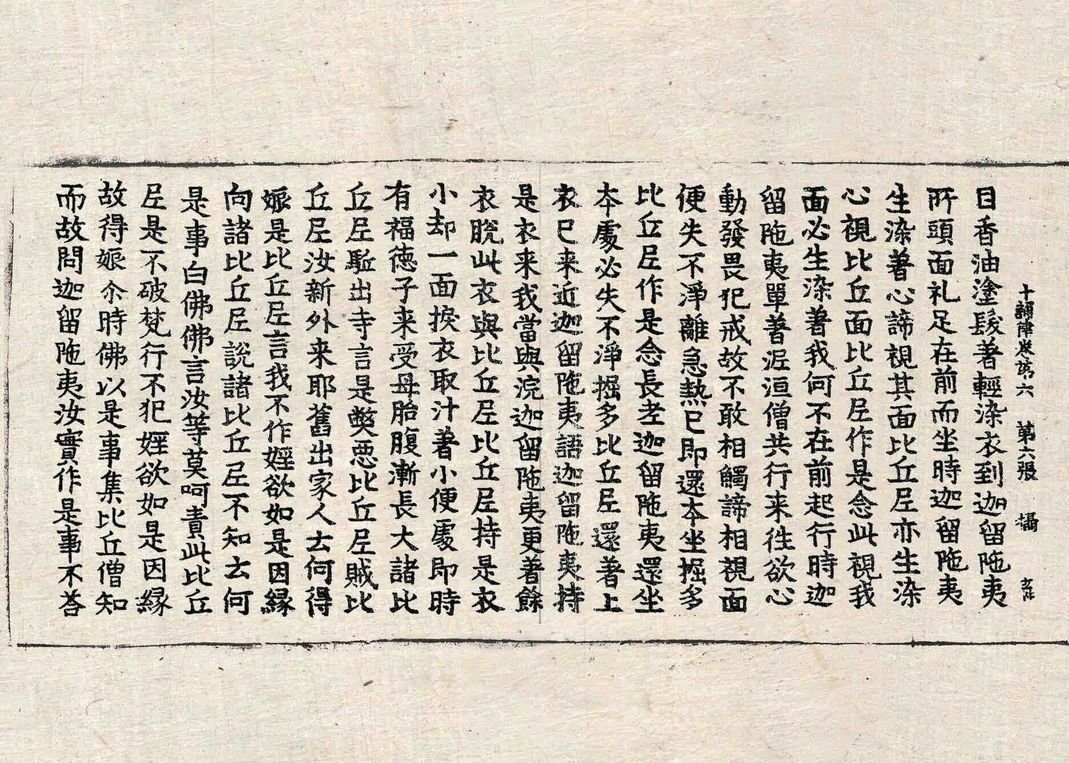 十誦律卷第六 第六張 攝
目香油塗髮著輕染衣到迦留陁夷
所頭面礼足在前而坐時迦留陁夷
生染著心諦視其面比丘尼亦生染
心視比丘面比丘尼作是念此視我
面必生染著我何不在前起行時迦
留陁夷單著涅洹僧共行来往欲心
動發畏犯戒故不敢相觸諦相視面
便失不淨離急熱已即還夲坐掘多
比丘尼作是念長老迦留陁夷還坐
夲處必失不淨掘多比丘尼還著上
衣已来近迦留陁夷語迦留陁夷持
是衣来我當與浣迦留陁夷更著餘
衣脫此衣與比丘尼比丘尼持是衣
小却一面捩衣取汁著小便處即時
有福德子来受母胎腹漸長大諸比
丘尼駈出寺言是弊惡比丘尼賊比
丘尼汝新外来耶舊出家人云何得
娠是比丘尼言我不作婬欲如是因縁
向諸比丘尼說諸比丘尼不知云何
是事白佛佛言汝等莫呵責此比丘
尼是不破梵行不犯婬欲如是因縁
故得娠尒時佛以是事集比丘僧知
而故問迦留陁夷汝實作是事不荅